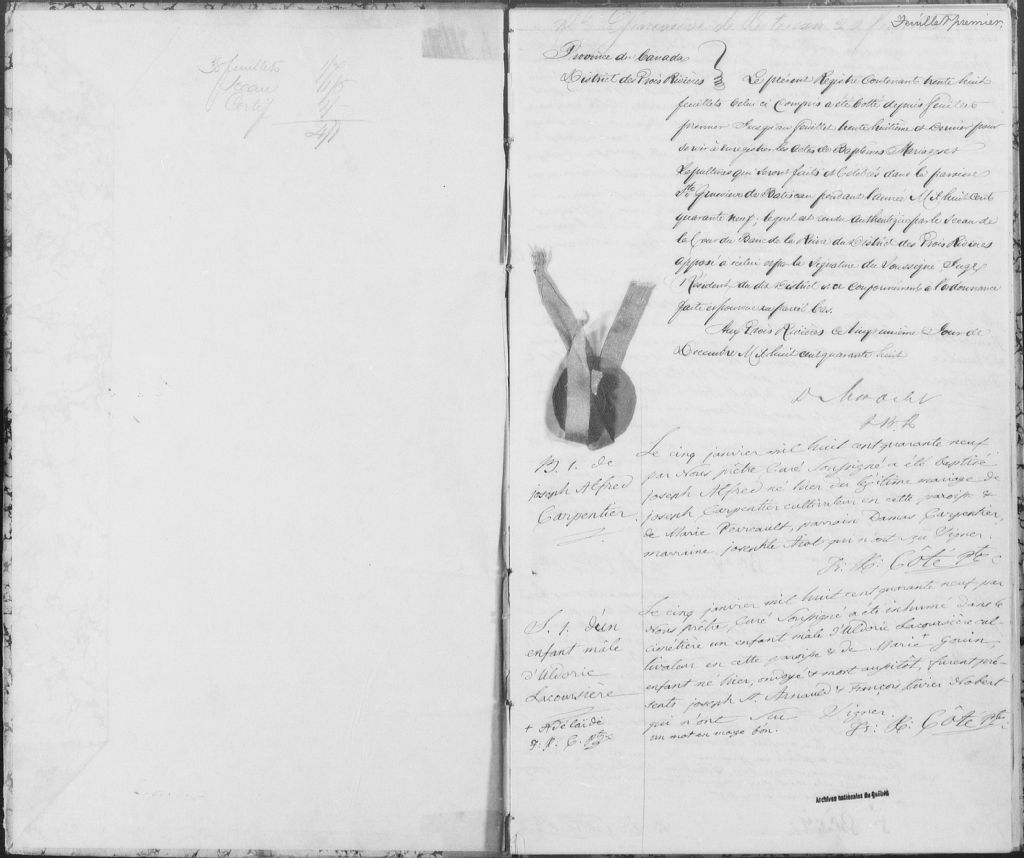 38 feuillets
Sceau
Certif
Feuillet premier.
Province du Canada
District des Trois Rivières
Le présent Registre Contenant trente huit
feuillets Celui ci Compris a été Cotté depuis feuillet
premier Jusqu'au feuillet trente huitième et Dernier pour
Servir à Enregistrer les Actes de Baptêmes Mariages et
Sépultures qui Seront faits et Célébrés dans la paroisse
Ste. Geneviève de Batiscan pendant l'année Mil huit cent
quarante neuf; lequel est rendu Authentique par le Sceau de
la Cour du Banc de la Reine du District des Trois Rivières
apposé à icelui et par la Signature du Soussigné Juge
Résident du dit District et ce Conformément à l'ordonnance
faite et pourvue en pareil Cas.
Aux Trois Rivières ce Vingt unième Jour de
Decembre Mil huit cent quarante huit
B. 1. de
Joseph Alfred
Carpentier.
Le cinq janvier mil huit cent quarante neuf
par Nous prêtre Curé Soussigné a été baptisé
joseph Alfred né hier du légitime mariage de
joseph Carpentier cultivateur en cette paroisse &
de Marie Perreault, parrain Damas Carpentier,
marraine josephte qui n'ont su Signer.
Fr: X: CÔTÉ Ptre
S. 1. d'un
enfant mâle
d'Uldoric
Lacoursière
+ Adélaïde
F: X: C. Ptre
Le cinq janvier mil huit cent quarante neuf par
Nous prêtre, Curé Soussigné a été inhumé dans le
cimetière un enfant mâle d'Uldoric Lacoursière cul-
tivateur en cette paroisse & de Marie + Gouin,
enfant né hier, ondoyé & mort aussitôt, furent pré-
sents joseph St. Arnauld & François
qui n'ont su Signer.
un mot en marge bon.
Fr: X: CÔTÉ Ptre
Archives nationales du Québec